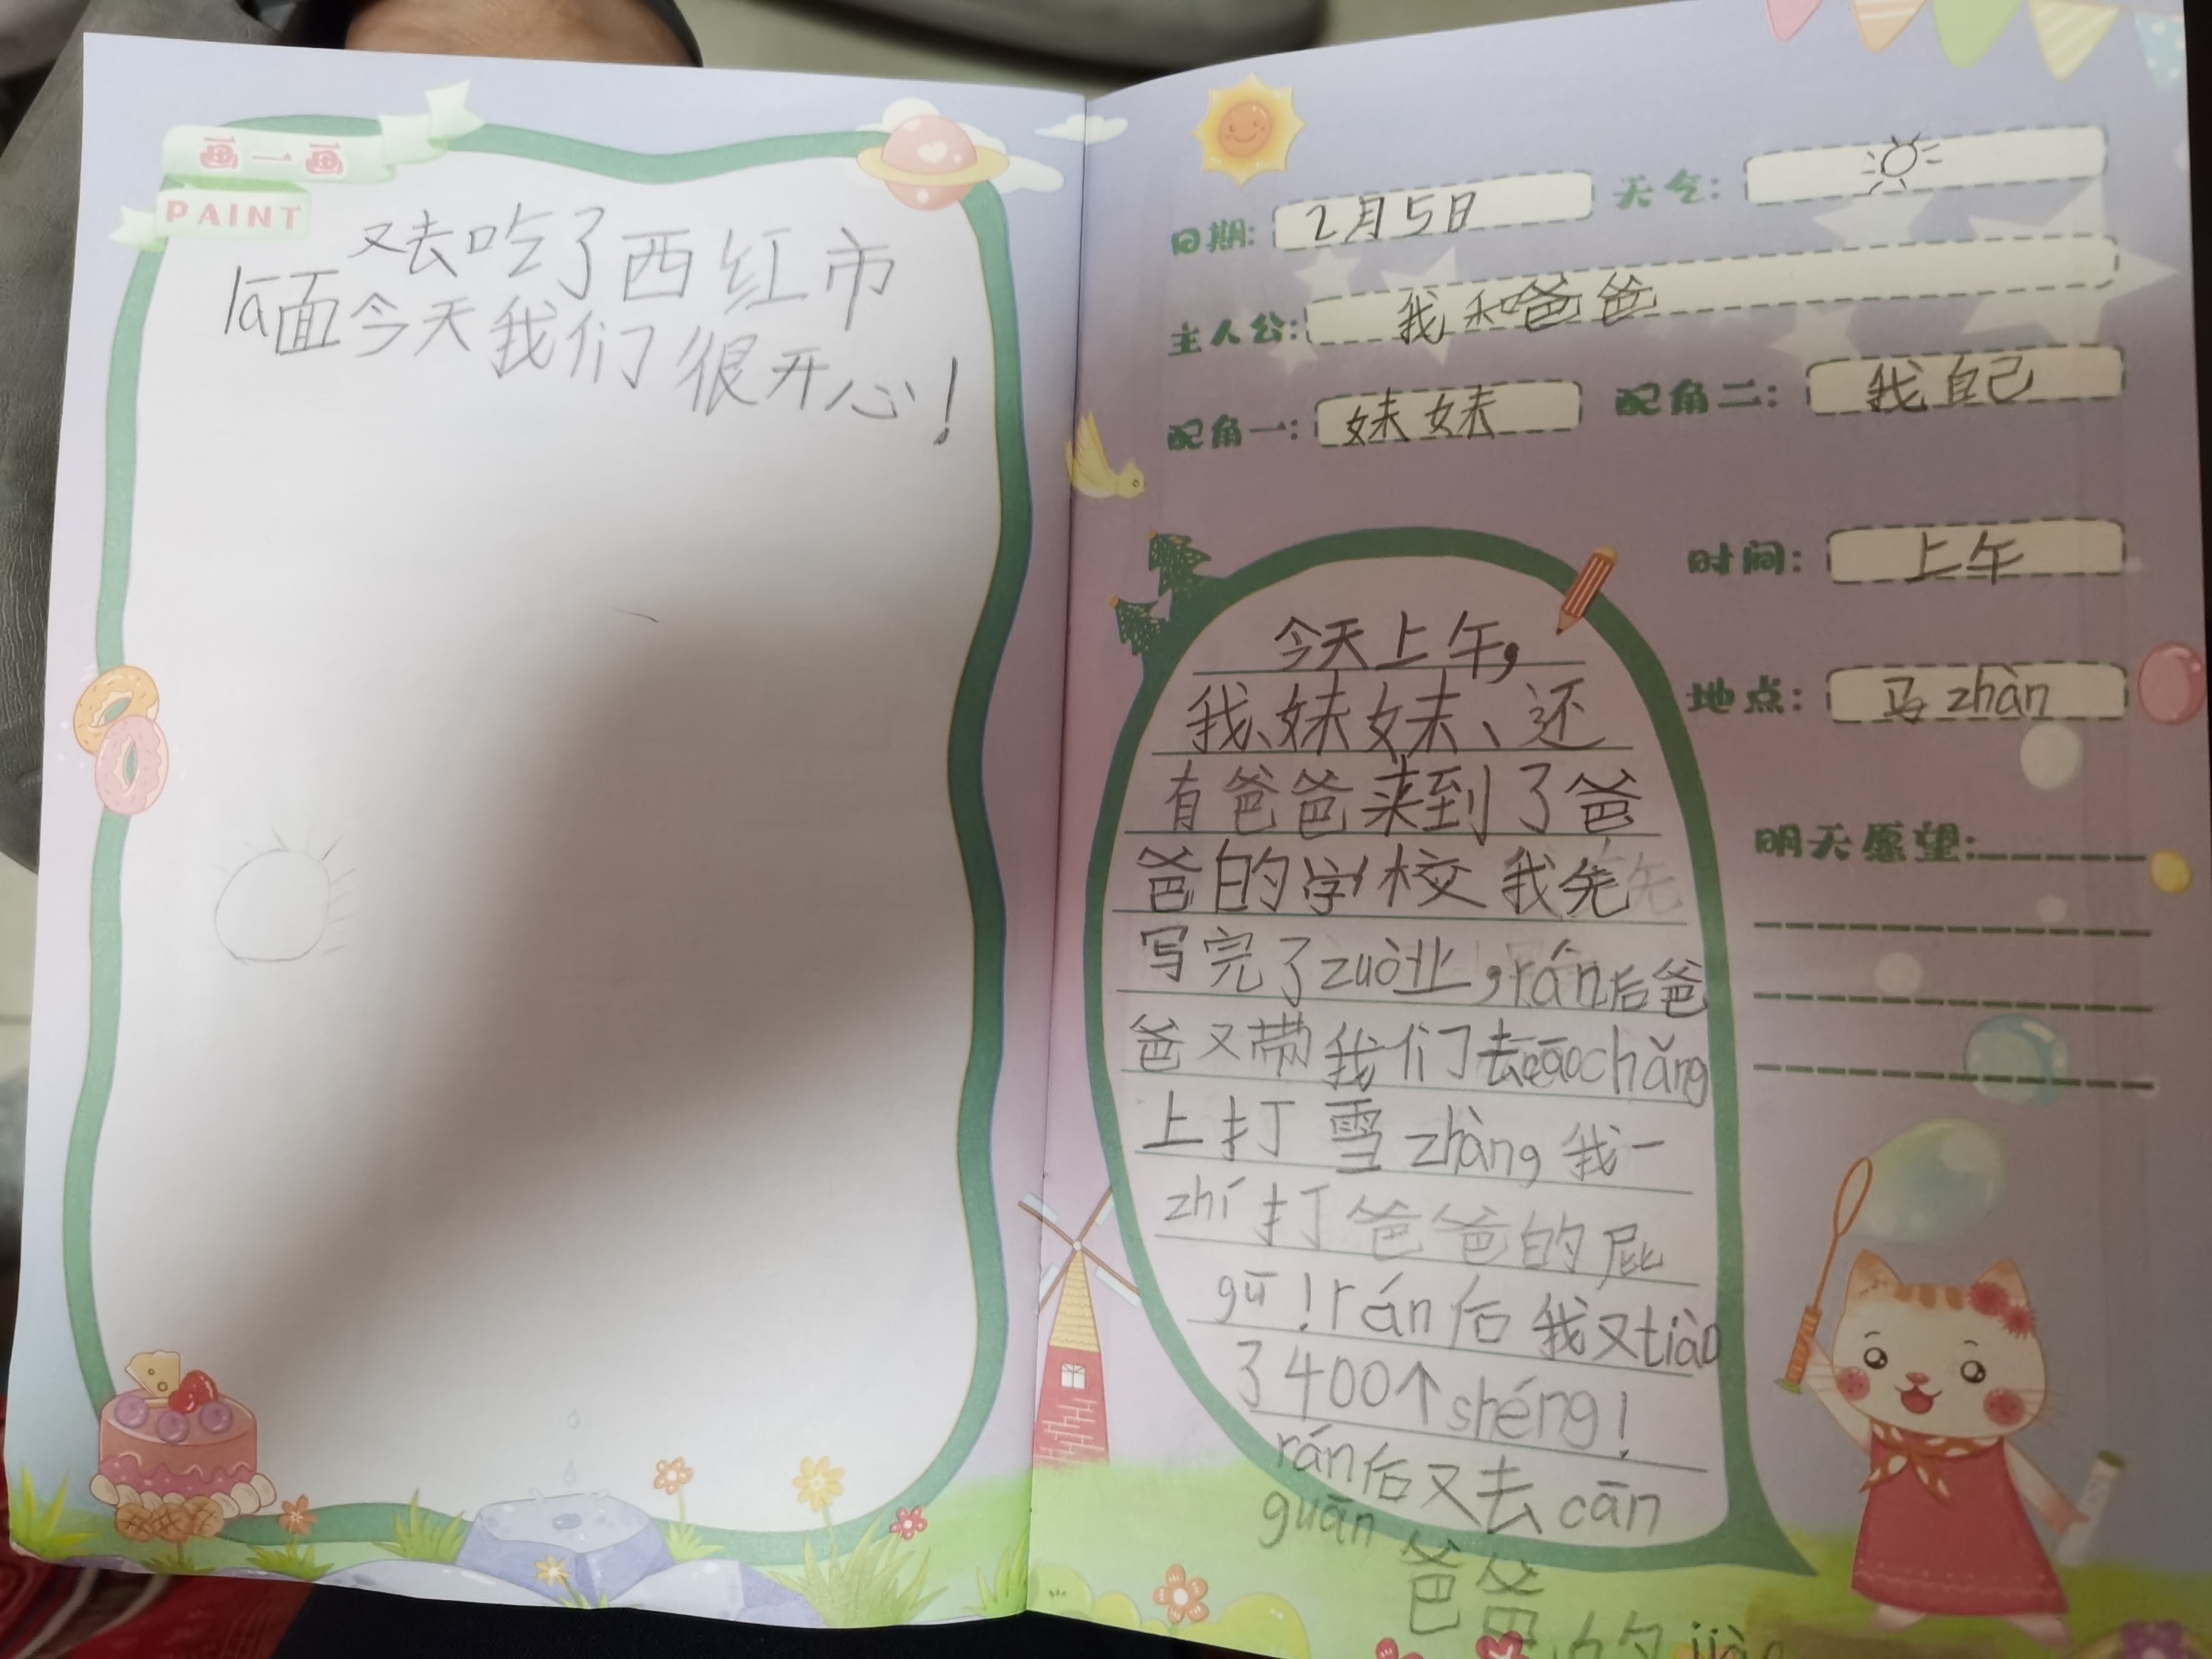 画一画
PAINT
又去吃了西红市
lā面今天我们很开心！
日期: 2月5日 天气:
主人公: 我和爸爸
配角一: 妹妹 配角二: 我自己
时间: 上午
地点: 马zhàn
明天愿望:
今天上午，
我、妹妹、还
有爸爸来到了爸
爸的学校 我先
写完了zuò业，rán后爸
爸又带我们去cāochǎng
上打雪zhàng我一
zhí打爸爸的屁
gū！rán后我又tiào
了400个shéng！
rán后又去cān
guān
爸爸
的jiào